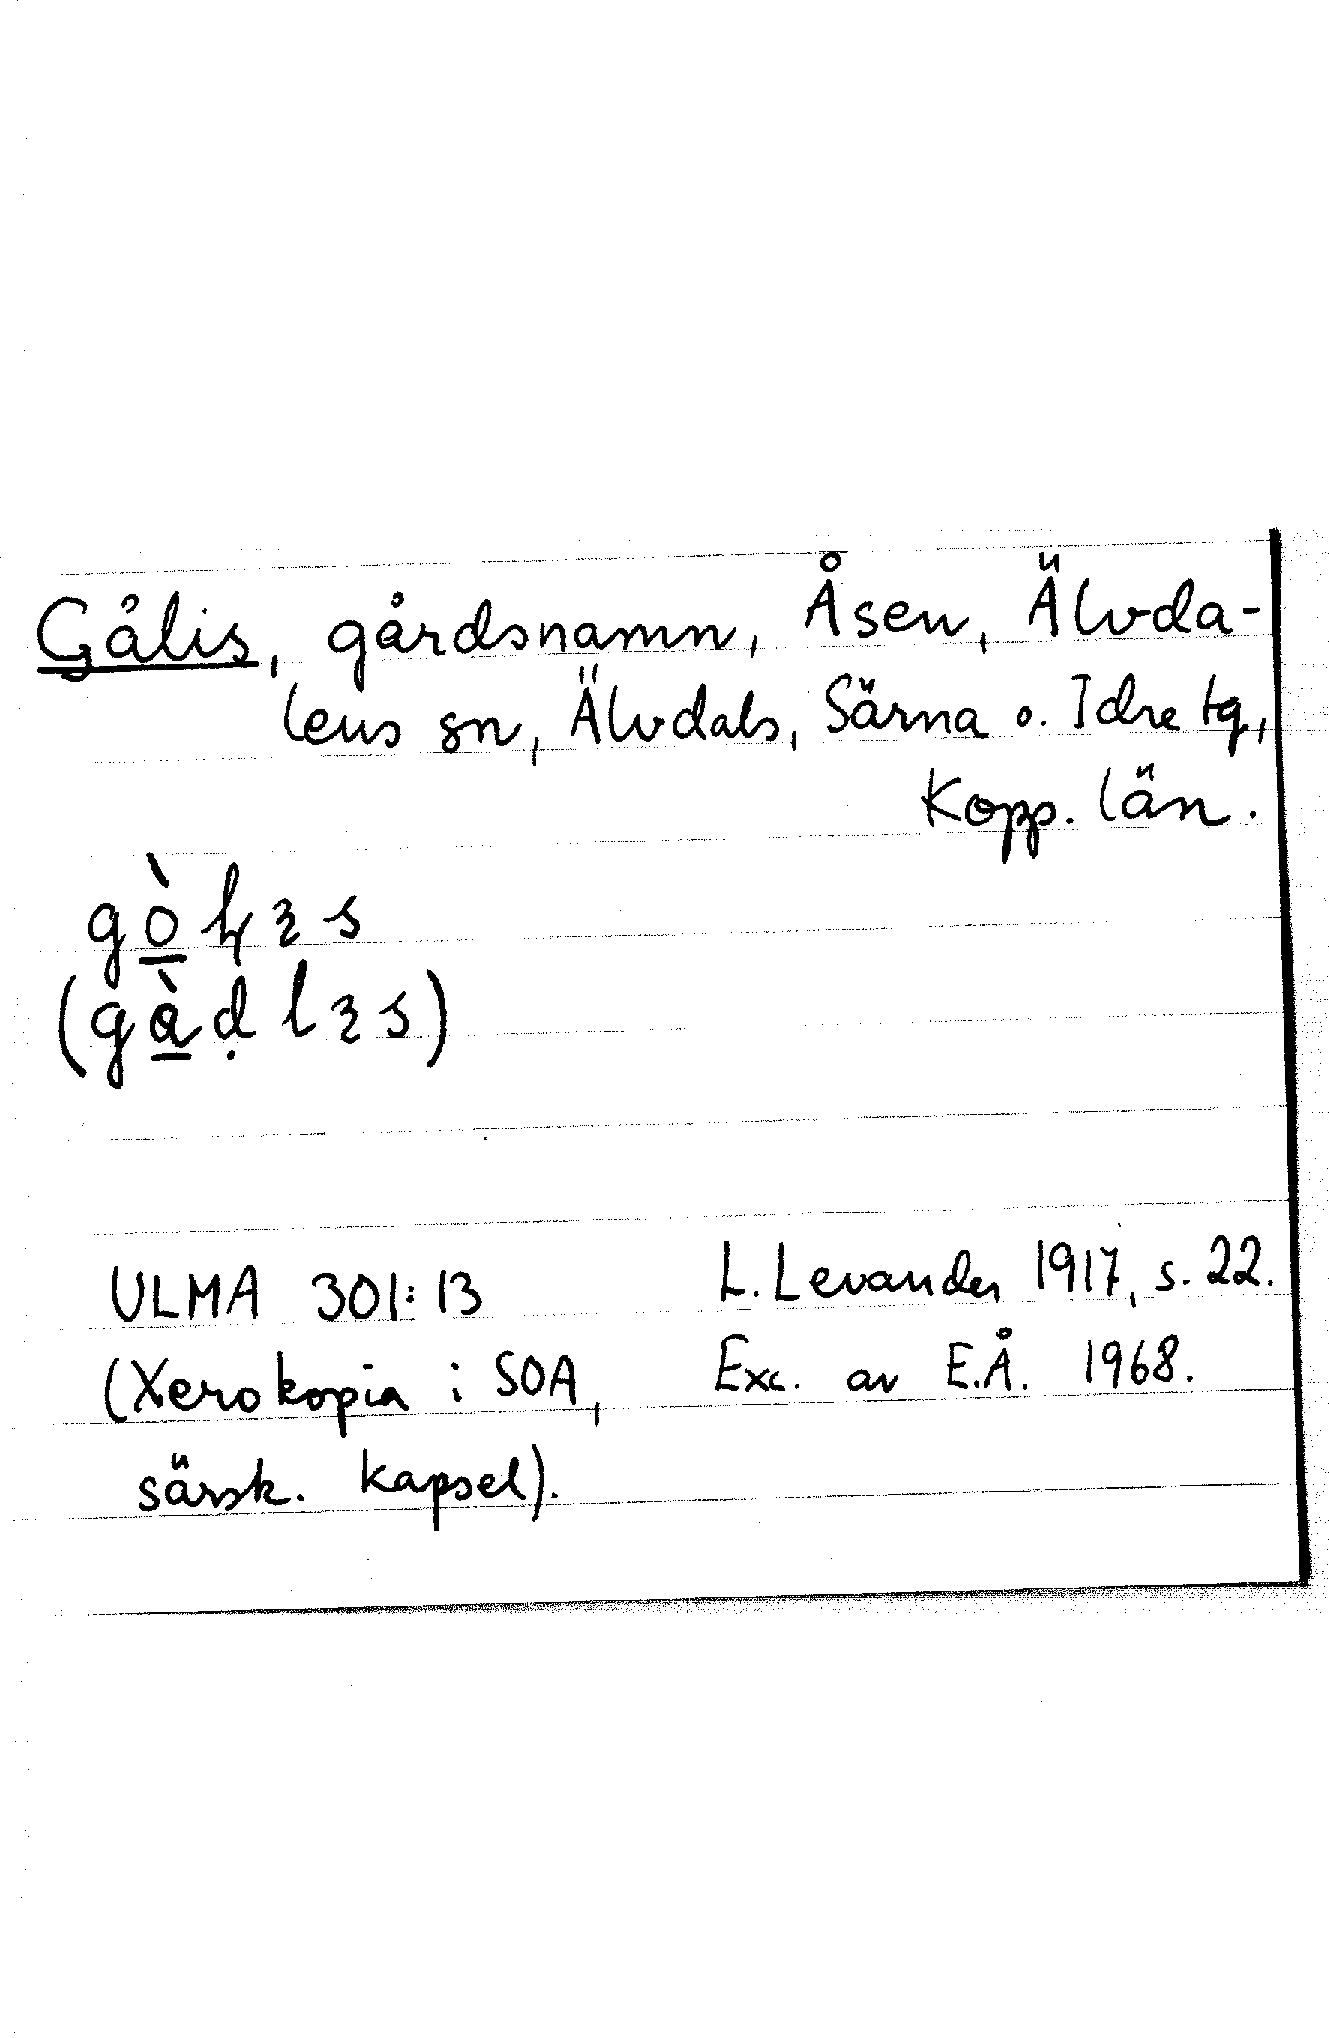 Gålis, gårdsnamn, Åsen, Älvda-
lens sn, Älvdals, Särna o. Idre tg,
Kopp. län.
ULMA 301:13
L. Levander 1917, s. 22.
(Xerokopia i SOA,
Exc. av E.Å. 1968.
särsk. kapsel).